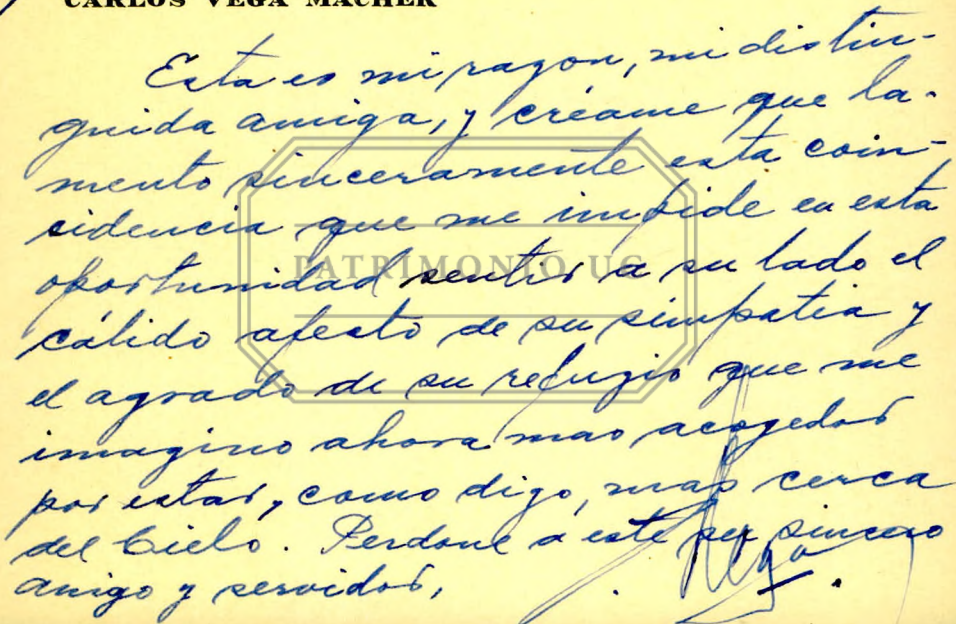 CARLOS VEGA MACHER
Esta es mi razon, mi distin-
guida amiga, y créame que la-
mento sinceramente esta coin-
sidencia que me impide en esta
oportunidad sentir a su lado el
cálido afecto de su simpatia y
el agrado de su refugio que me
imagino ahora mas acogedor
por estar, como digo, mas cerca
del Cielo. Perdone a este su sincero
amigo y servidor,
Vega
PATRIMONIO UC